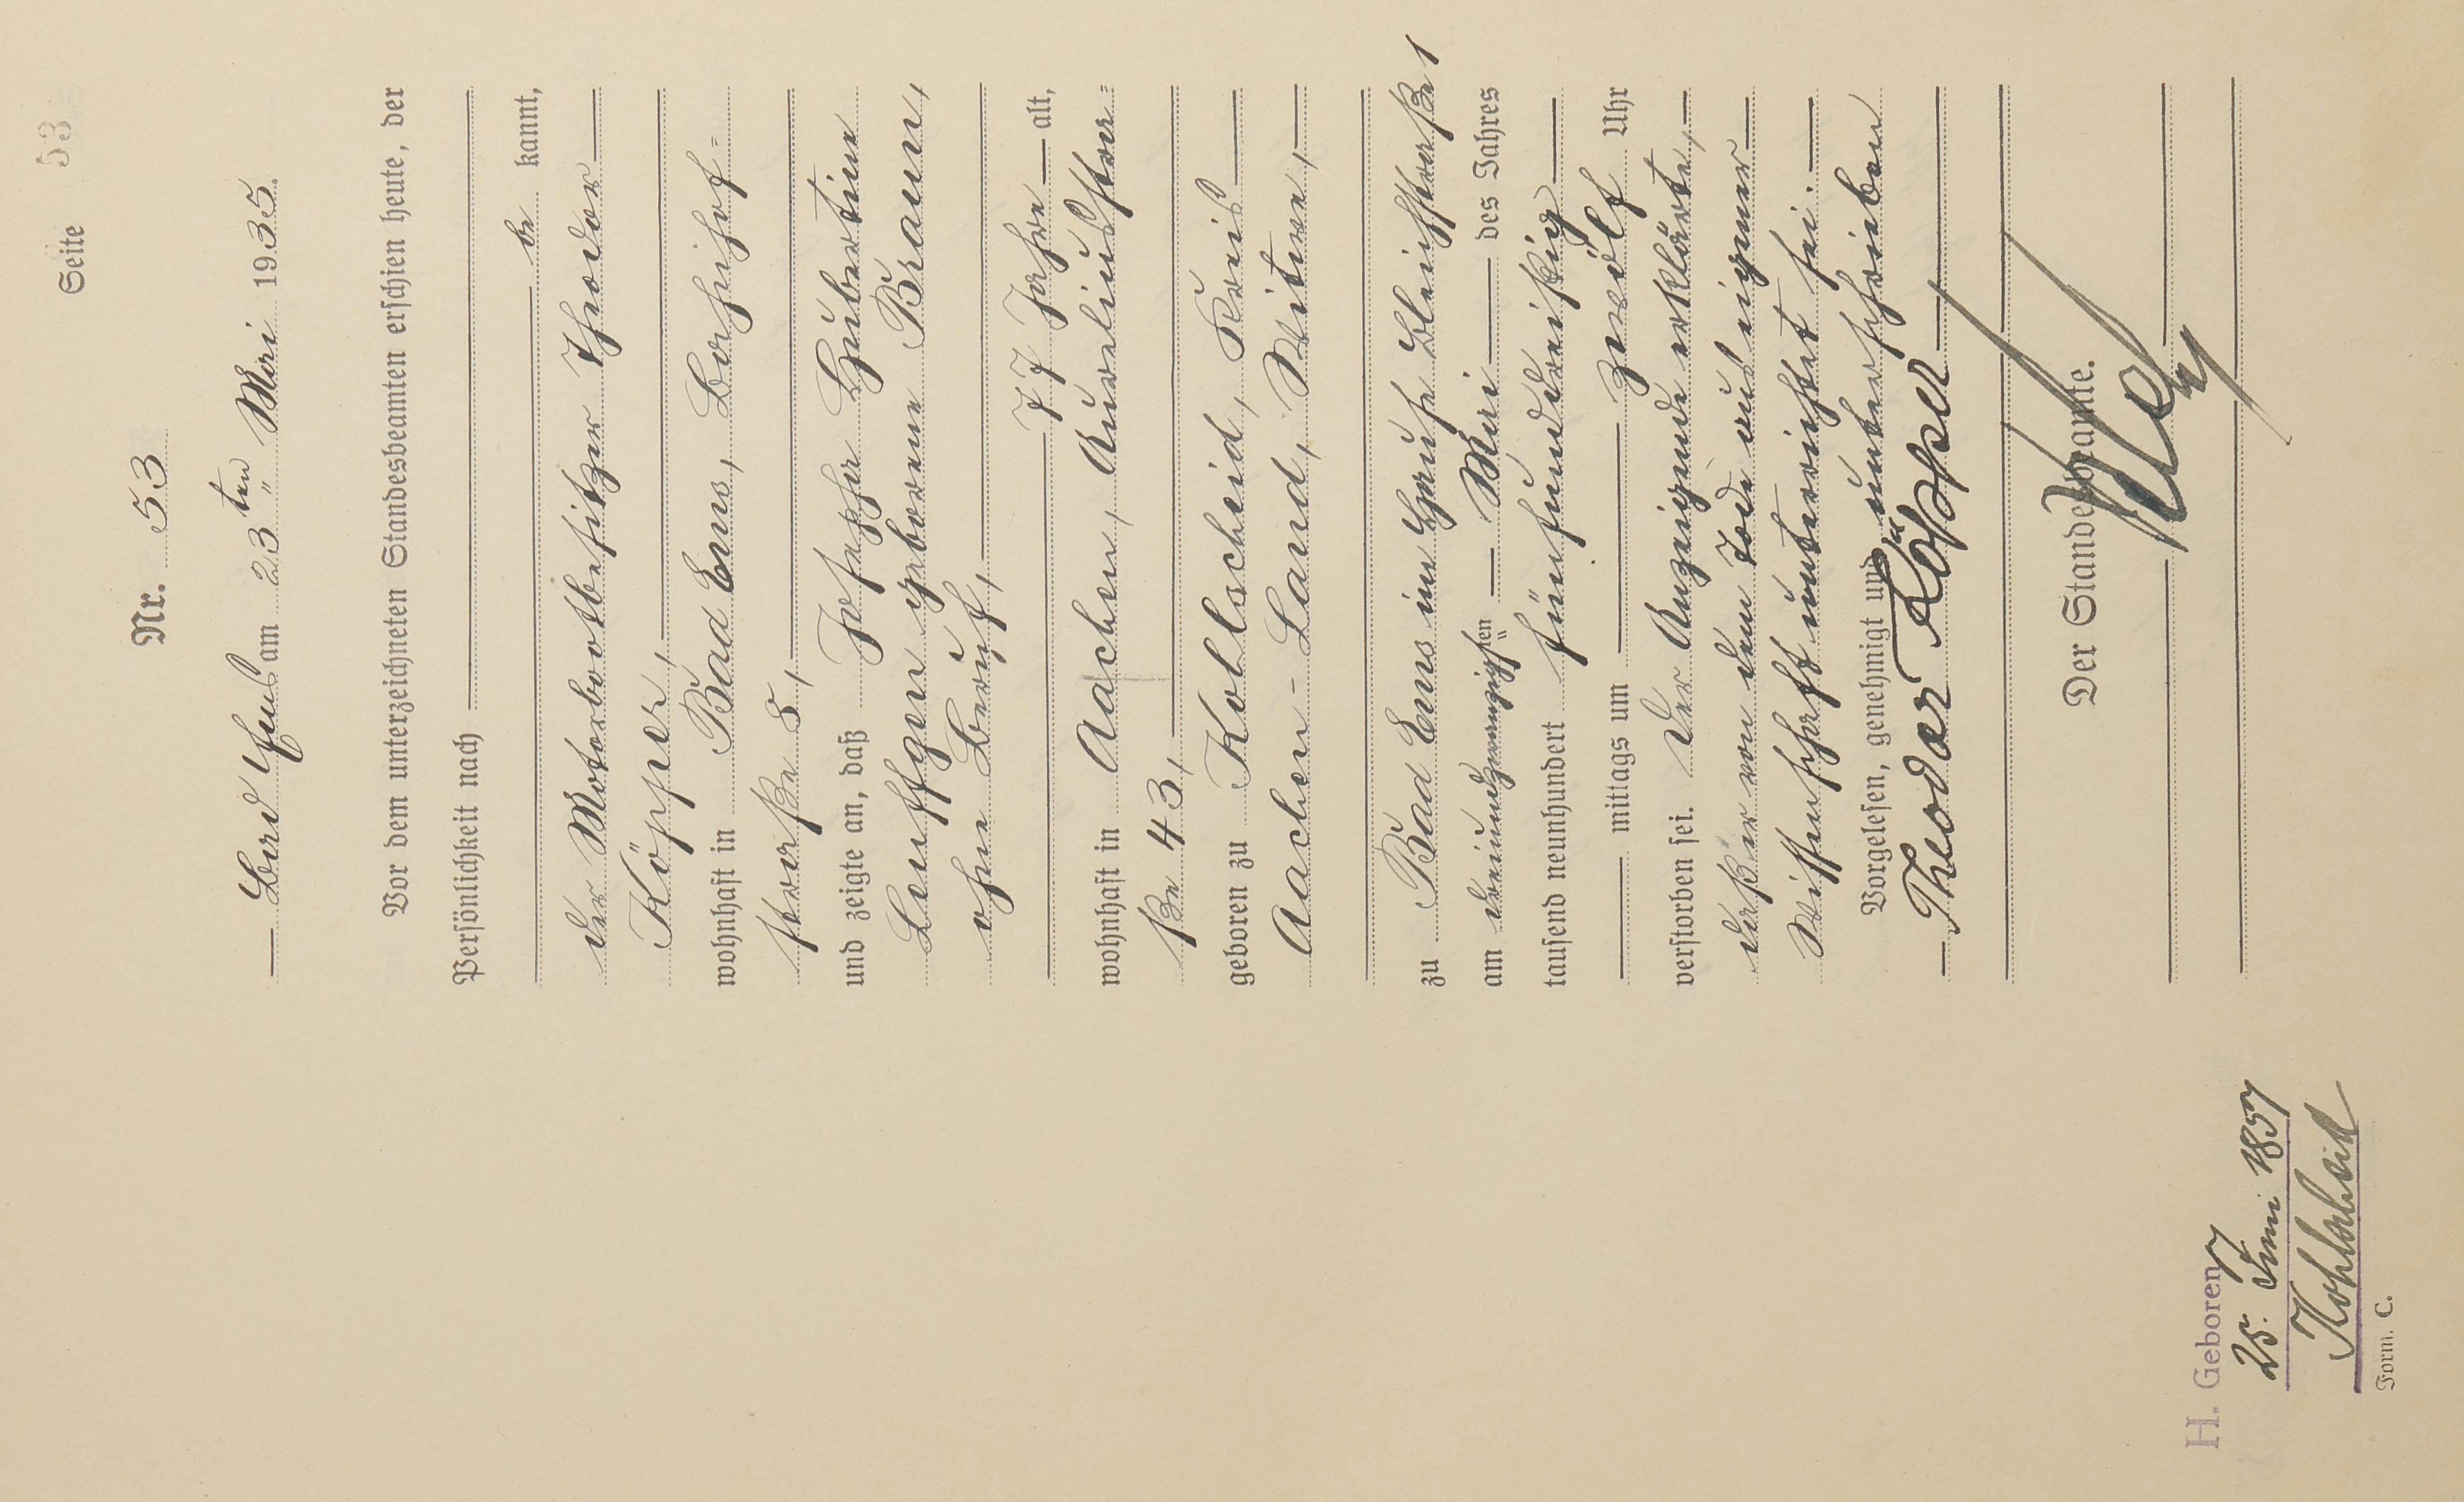 Seite 53
Nr. 53
Bad Ems am 23ten Mai 1935.
Vor dem unterzeichneten Standesbeamten erschien heute, der
Persönlichkeit nach
be kannt,
der Motorbootbesitzer Theodor
Köpper,
wohnhaft in Bad Ems, Bachstraße
straße 8,
und zeigte an, daß Josephe Hubertine
Lauffgen geborene Braun,
ohne Beruf,
77 Jahre alt,
wohnhaft in Aachen, Aureliusstra=
ße 43,
geboren zu Kohlscheid, Kreis
Aachen-Land, Witwe,
zu Bad Ems im Hause Bleichstraße 1
am dreiundzwanzigsten Mai des Jahres
tausend neunhundert fünfunddreißig
mittags um zwölf Uhr
verstorben sei. Der Anzeigende erklärte,
daß er von dem Tode aus eigener
Wissenschaft unterrichtet sei.
Vorgelesen, genehmigt und unterschrieben
Theodor Köpper
Der Standesbeamte.
H. Geboren
25. Juni 1857
Kohlscheid
Form. C.